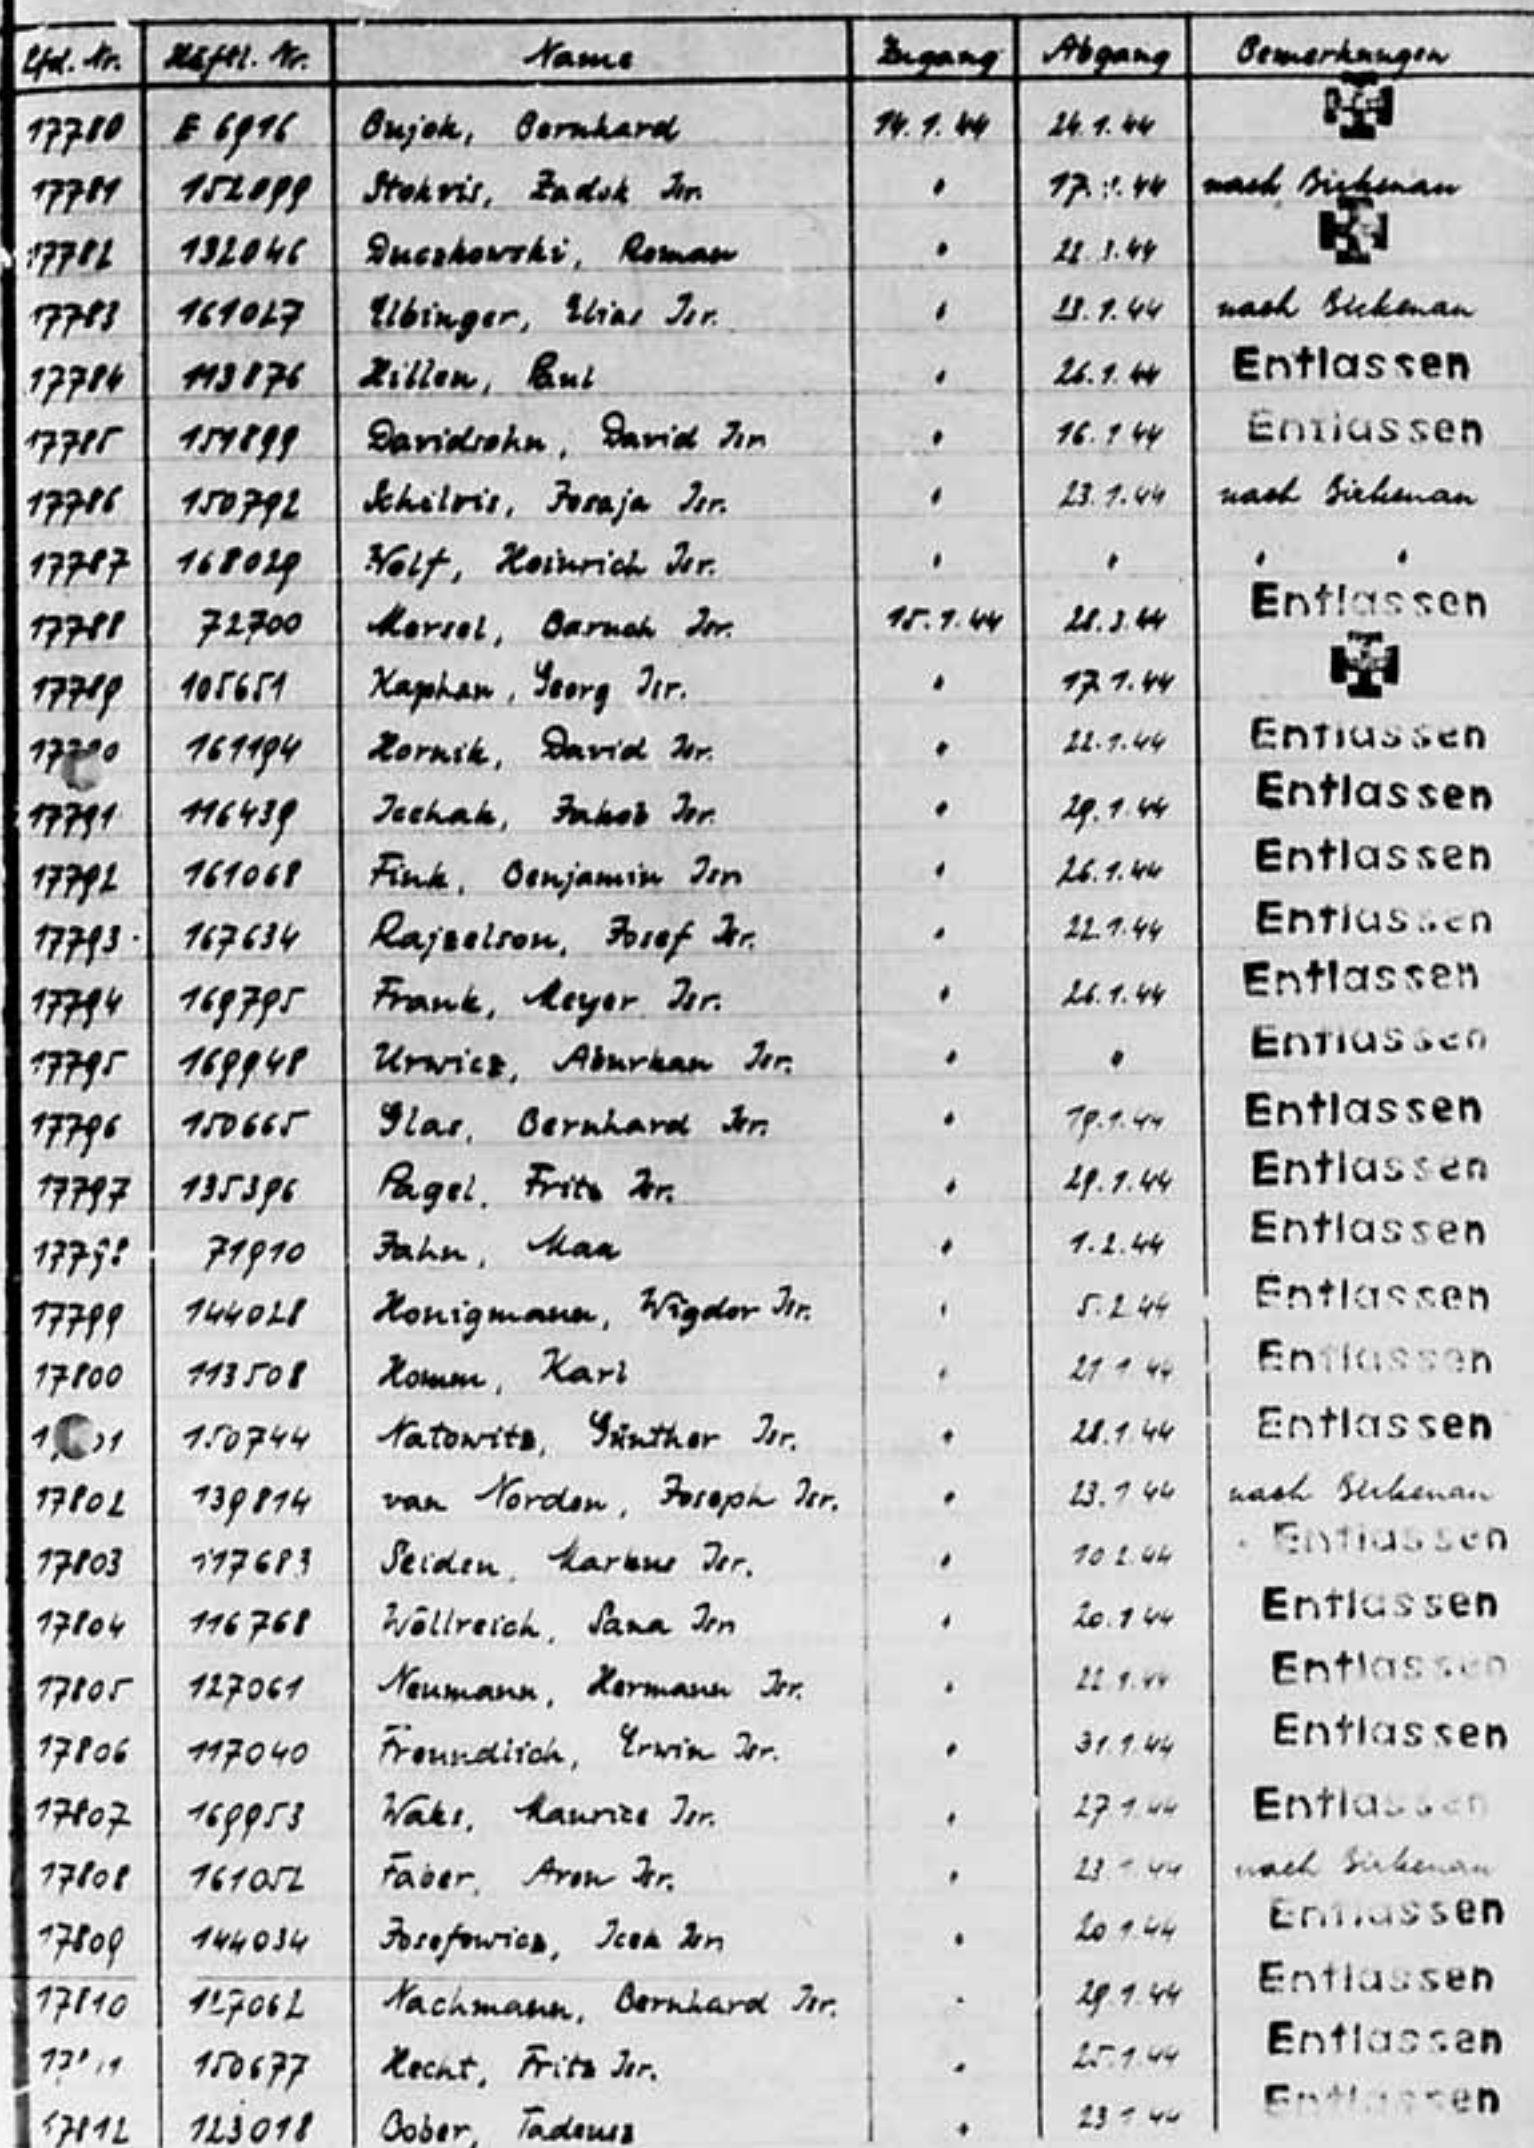 Lfd. Nr. Häftl. Nr. Name Zugang Abgang Bemerkungen
17780 E 6916 Bujok, Bernhard 14.1.44 24.1.44
17781 152099 Stokvis, Zadok Isr. " 17.1.44 nach Birkenau
17782 132046 Duczkowski, Roman " 22.3.44
17783 161027 Elbinger, Elias Isr. " 23.1.44 nach Birkenau
17784 113876 Hillen, Paul " 26.1.44 Entlassen
17785 151899 Davidsohn, David Isr. " 16.1.44 Entlassen
17786 150792 Schelvis, Josaja Isr. " 23.1.44 nach Birkenau
17787 168029 Wolf, Heinrich Isr. " " " "
17788 72700 Mersel, Baruch Isr. 15.1.44 28.3.44 Entlassen
17789 105651 Kaphan, Georg Isr. " 17.1.44
17790 161194 Hornik, David Isr. " 22.1.44 Entlassen
17791 116439 Icchak, Jakob Isr. " 29.1.44 Entlassen
17792 161068 Fink, Benjamin Isr. " 26.1.44 Entlassen
17793 167634 Rajzelson, Josef Isr. " 22.1.44 Entlassen
17794 169795 Frank, Meyer Isr. " 26.1.44 Entlassen
17795 169948 Urwicz, Isr. " " Entlassen
17796 150665 Glas, Bernhard Isr. " 19.1.44 Entlassen
17797 135396 Pagel, Fritz Isr. " 29.1.44 Entlassen
17798 71910 Jahn, Max " 1.2.44 Entlassen
17799 144028 Honigmann, Wigdor Isr. " 5.2.44 Entlassen
17800 113508 Homm, Karl " 21.1.44 Entlassen
150744 Natowitz, Günther Isr. " 28.1.44 Entlassen
17802 139814 van Norden, Joseph Isr. " 23.1.44 nach Birkenau
17803 117683 Seiden, Markus Isr. " 10.2.44 Entlassen
17804 116768 Wöllreich, Sana Isr. " 20.1.44 Entlassen
17805 127061 Neumann, Hermann Isr. " 22.1.44 Entlassen
17806 117040 Freundlich, Erwin Isr. " 31.1.44 Entlassen
17807 169953 Waks, Maurice Isr. " 27.1.44 Entlassen
17808 161052 Faber, Aron Isr. " 23.1.44 nach Birkenau
17809 144034 Josefowicz, Icek Isr. " 20.1.44 Entlassen
17810 127062 Nachmann, Bernhard Isr. " 29.1.44 Entlassen
150677 Hecht, Fritz Isr. " 25.1.44 Entlassen
17812 123018 Bober, Tadeusz " 23.1.44 Entlassen